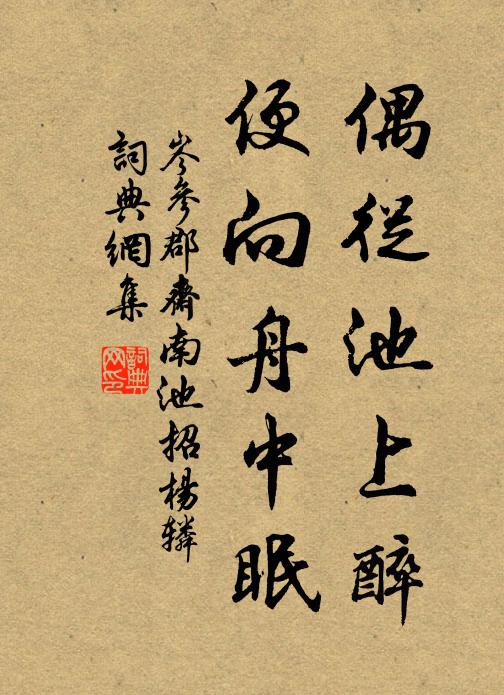 偶從池上醉
便向舟中眠
岑參郡齋南池招楊轔
詞典網集
詞典网印